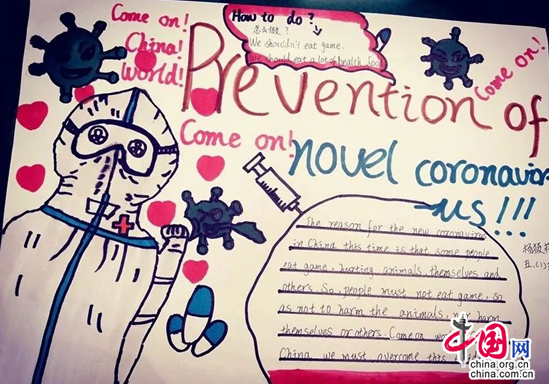 Come on!
China!
World!
How to do?
怎么做?
We shouldn't eat game.
should eat a lot of health
Prevention of
Come on!
Come on!
novel coronavir
us!!!
The reason for the new coronavirus
in China this time is that some people
eat game, hurting animals themselves and
others. So people must not eat game, so
as not to harm the animals, nor harm
themselves or others. Come on
China, we must overcome this
中国网
china.org.cn
china.com.cn